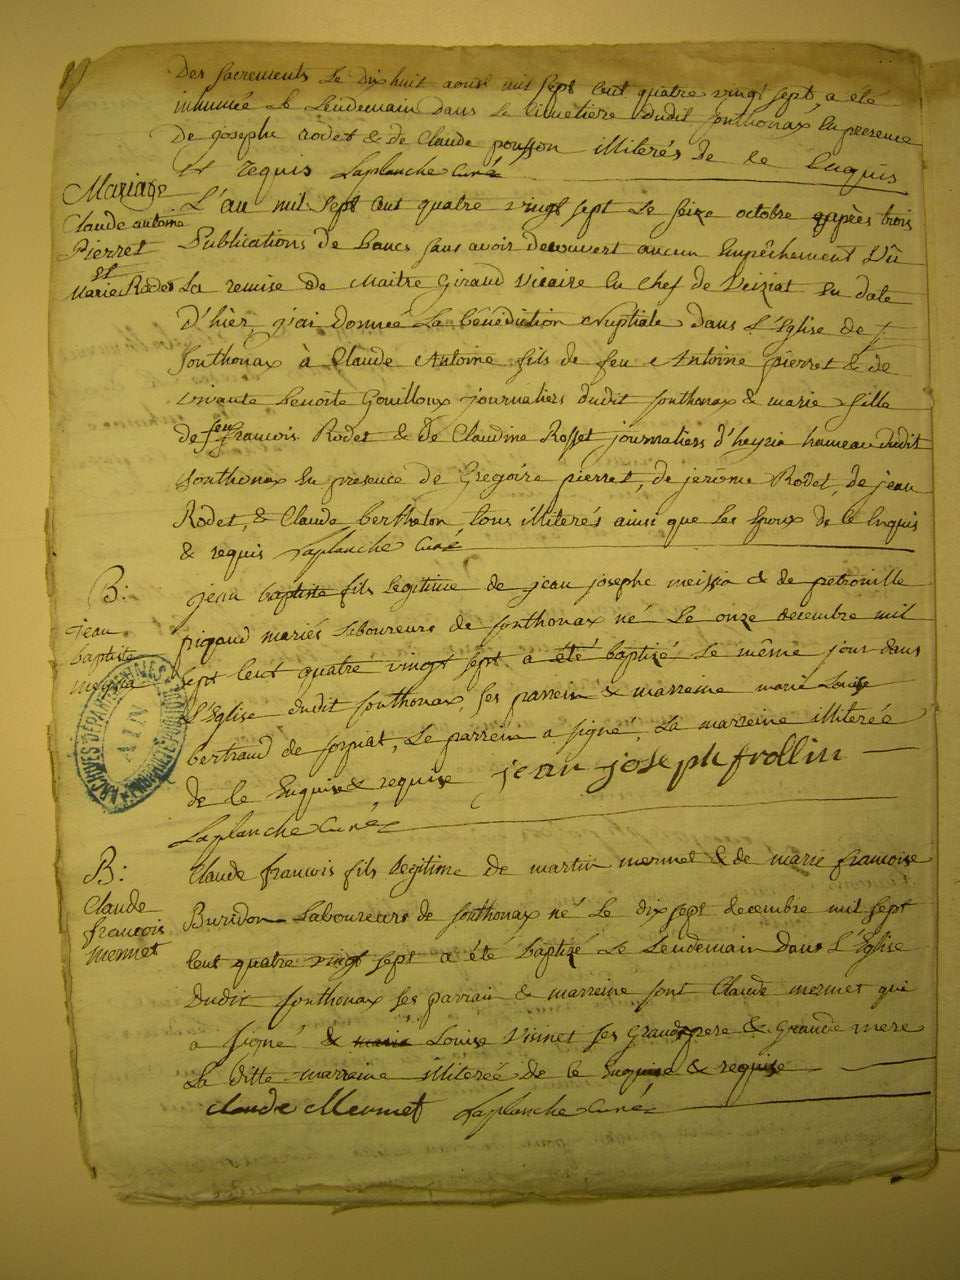 Des sacrements Le Dix huit aoust mil sept Cent quatre vingt sept, a eté
inhumée Le Lendemain Dans Le Cimetiere Dudit Sonthonax En presence
De josephe Rodet & de Claude pousson illiterés De ce Enquis
et requis Laplanche Curé
Mariage
Claude antoine
Pierret
et
Marie Rodet
L'an mil sept Cent quatre vingt sept Le seize octobre après trois
Publications de bancs sans avoir decouvert aucun Empêchement Vû
La remise de Maitre Giraud Vicaire En Chef de Veiziat En date
D'hier, j'ai donnée La bénédiction Nuptiale Dans L'Eglise de
Sonthonax à Claude Antoine fils de feu Antoine pierret & de
vivante benoite Gouilloux journaliers dudit Sonthonax & marie fille
de feu françois Rodet & de Claudine Rosset journaliers d'heyria hameau dudit
Sonthonax En presence de Gregoire pierret, de jerôme Rodet, de jean
Rodet, & Claude berthelon, tous illiterés ainsi que Les Epoux de ce Enquis
& requis Laplanche Curé
B:
jean
baptiste
meyssia
jean baptiste fils Legitime de jean josephe meissia & de petronille
pigaud mariés Laboureurs de Sonthonax né Le onze decembre mil
sept Cent quatre vingt sept a été baptizé Le même jour dans
L'Eglise dudit Sonthonax, ses parrein & marreine marie Louise
bertrand de Sorpiat, Le parrein a signé, La marreine illiterée
de ce Enquise & requise jean joseph frollin
Laplanche Curé
ARCHIVES DEPARTEMENTALES
AIN
B:
Claude
françois
mermet
Claude françois fils Legitime de martin mermet & de marie françoise
Buridon Laboureurs de Sonthonax né Le dix sept decembre mil sept
Cent quatre vingt sept a été baptizé Le Lendemain Dans L'Eglise
Dudit Sonthonax ses parrain & marreine sont Claude mermet qui
a signé & marie Louise Vuinet ses Grand pere & Grande mere
La ditte marreine illiterée de ce Enquise & requise
Claude Mermet Laplanche Curé